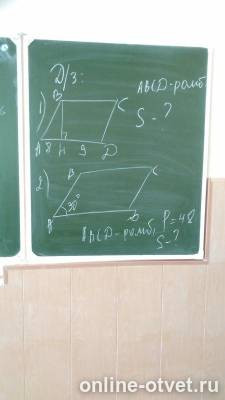 Д/з:
1) B C ABCD-ромб.
S-?
A 8 H 9 D
2) B C
30°
A D
ABCD-ромб, P=48
S-?
online-otvet.ru